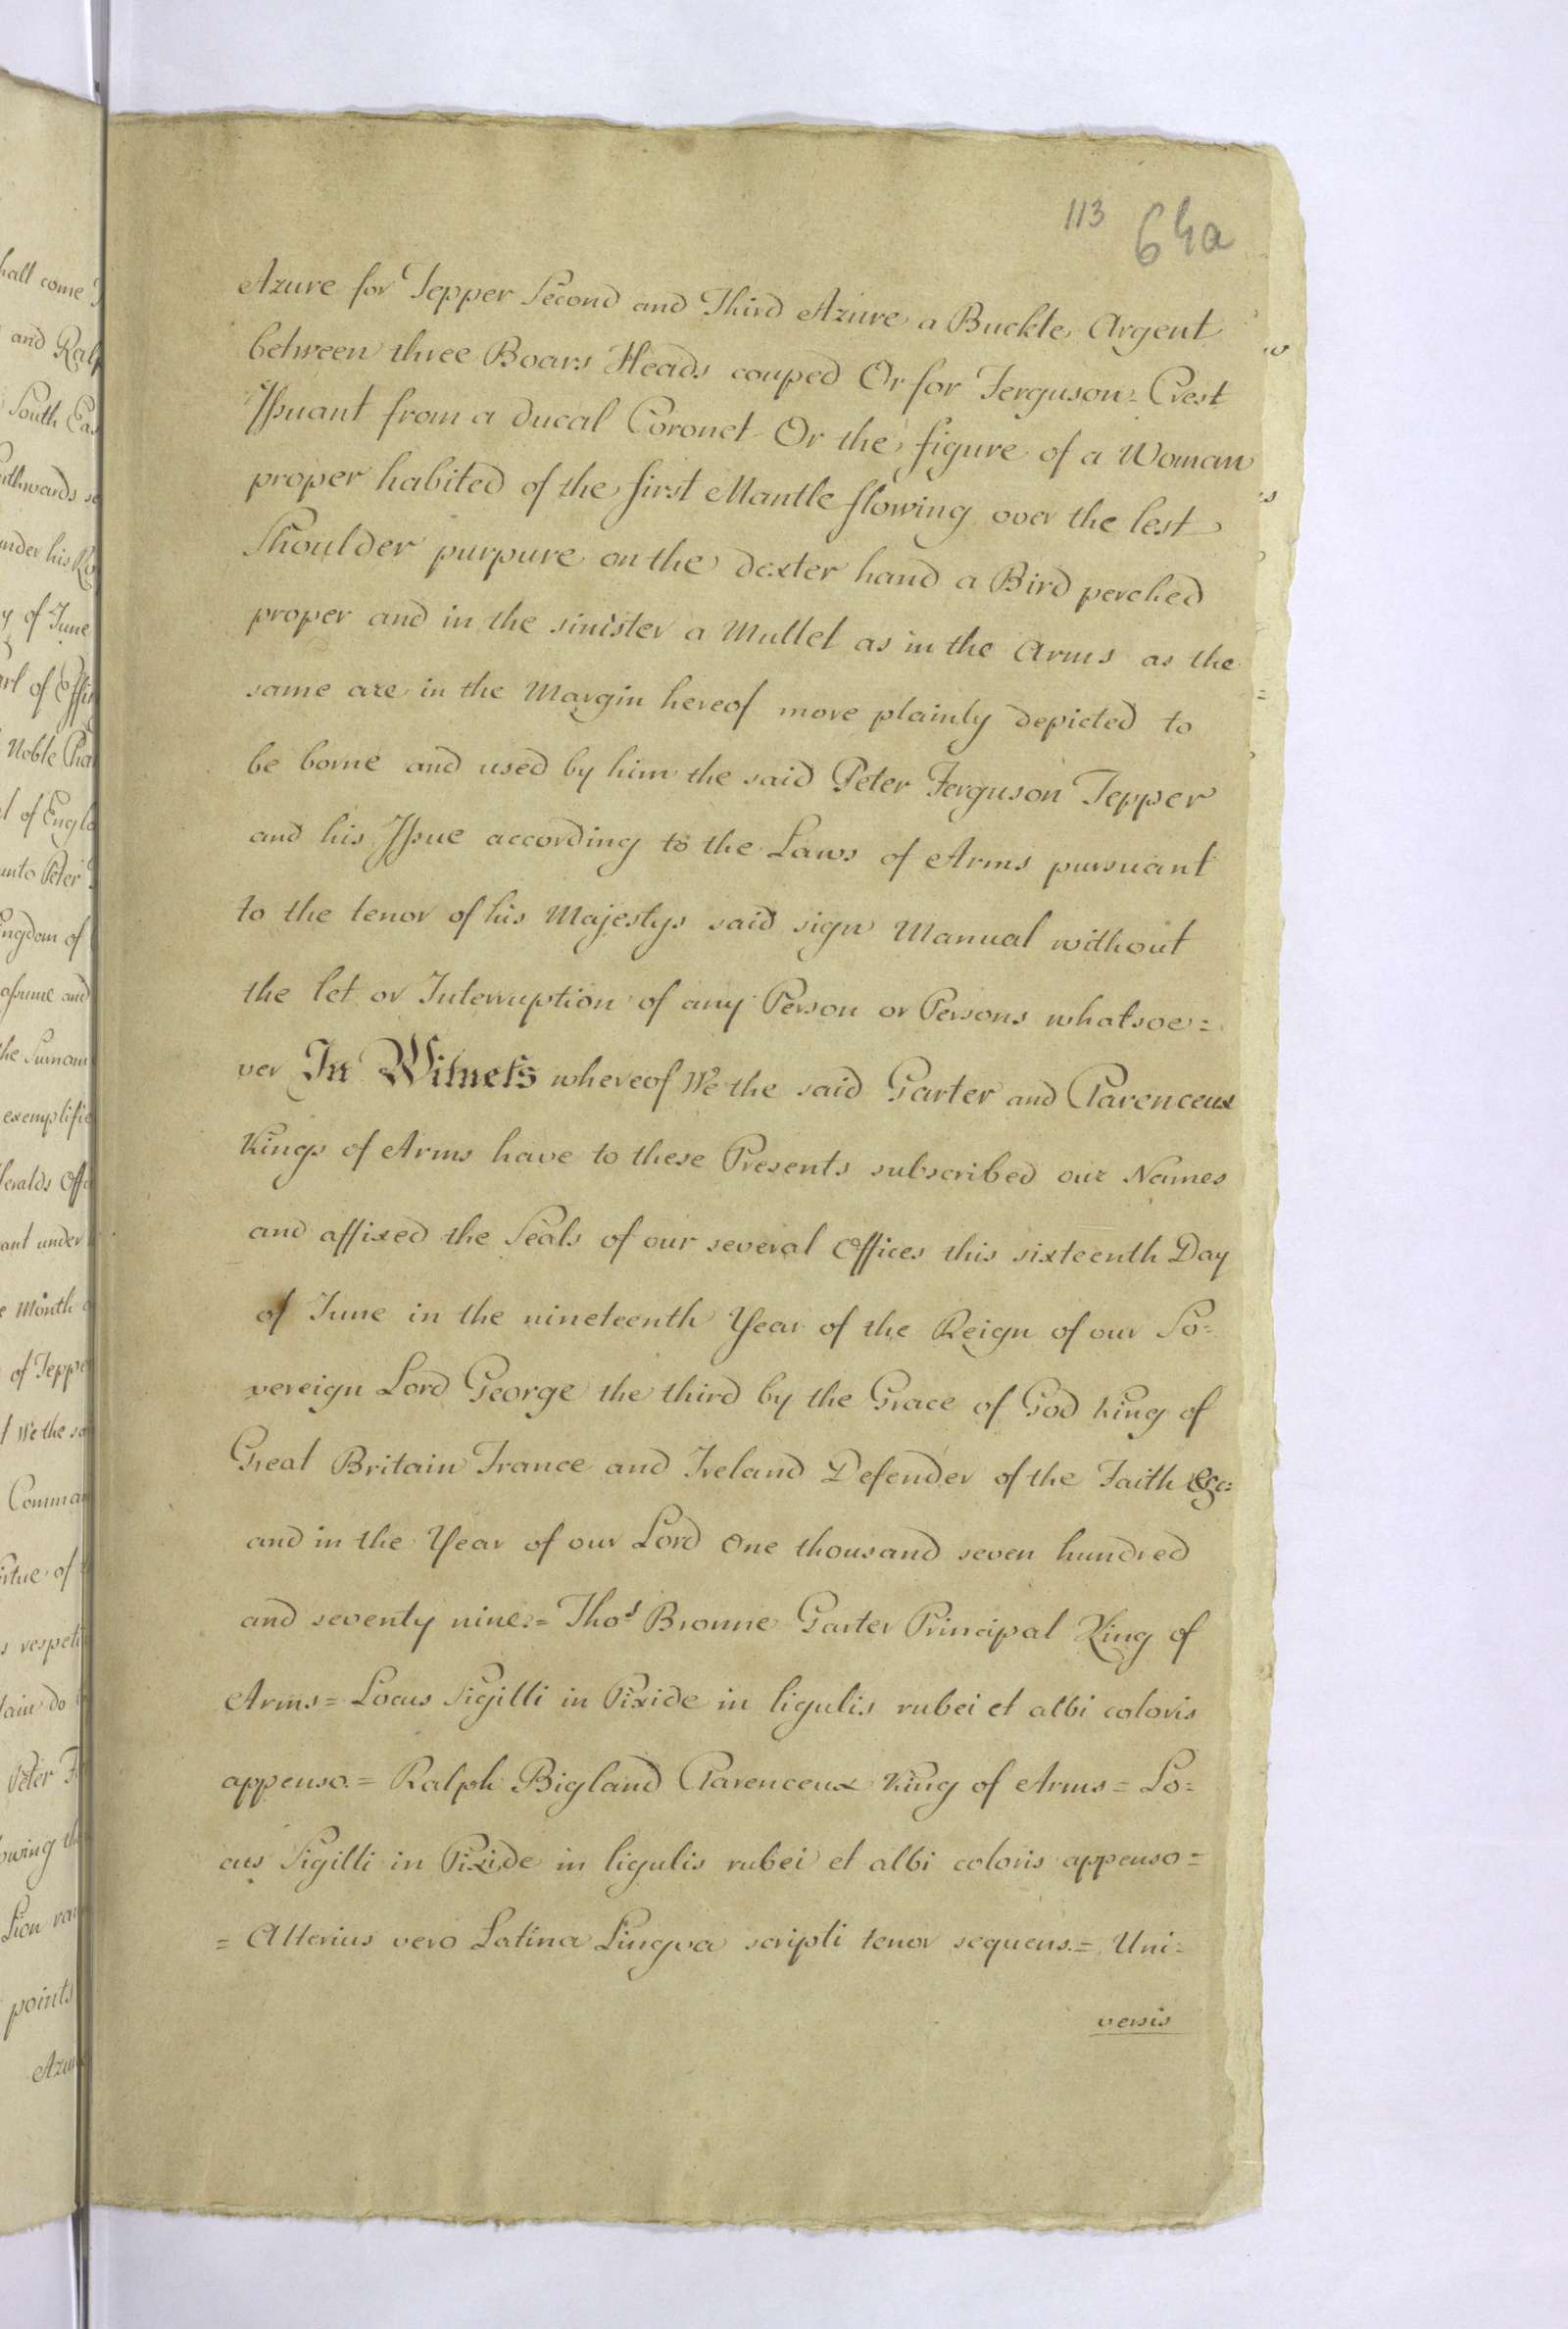 113 64a
Azure for Tepper Second and Third Azure a Buckle Argent
between three Boars Heads couped Or for Ferguson = Crest
Issuant from a ducal Coronet Or the figure of a Woman
proper habited of the first Mantle flowing over the lest
Shoulder purpure on the dexter hand a Bird perched
proper and in the sinister a Mullet as in the Arms as the
same are in the Margin hereof more plainly depicted to
be borne and used by him the said Peter Ferguson Tepper
and his Issue according to the Laws of Arms pursuant
to the tenor of his Majestys said sign Manual without
the let or Interruption of any Person or Persons whatsoe=
ver In Witness whereof We the said Garter and Clarenceux
Kings of Arms have to these Presents subscribed our Names
and affixed the Seals of our several Offices this sixteenth Day
of June in the nineteenth Year of the Reign of our So=
vereign Lord George the third by the Grace of God King of
Great Britain France and Ireland Defender of the Faith &c:
and in the Year of our Lord One thousand seven hundred
and seventy nine. = Thos Bronne Garter Principal King of
Arms = Locus Sigilli in Pixide in ligulis rubei et albi coloris
appenso. = Ralph Bigland Clarenceux King of Arms = Lo=
cus Sigilli in Pixide in ligulis rubei et albi coloris appenso =
= Alterius vero Latina Lingva scripti tenor sequens. = Uni=
versis